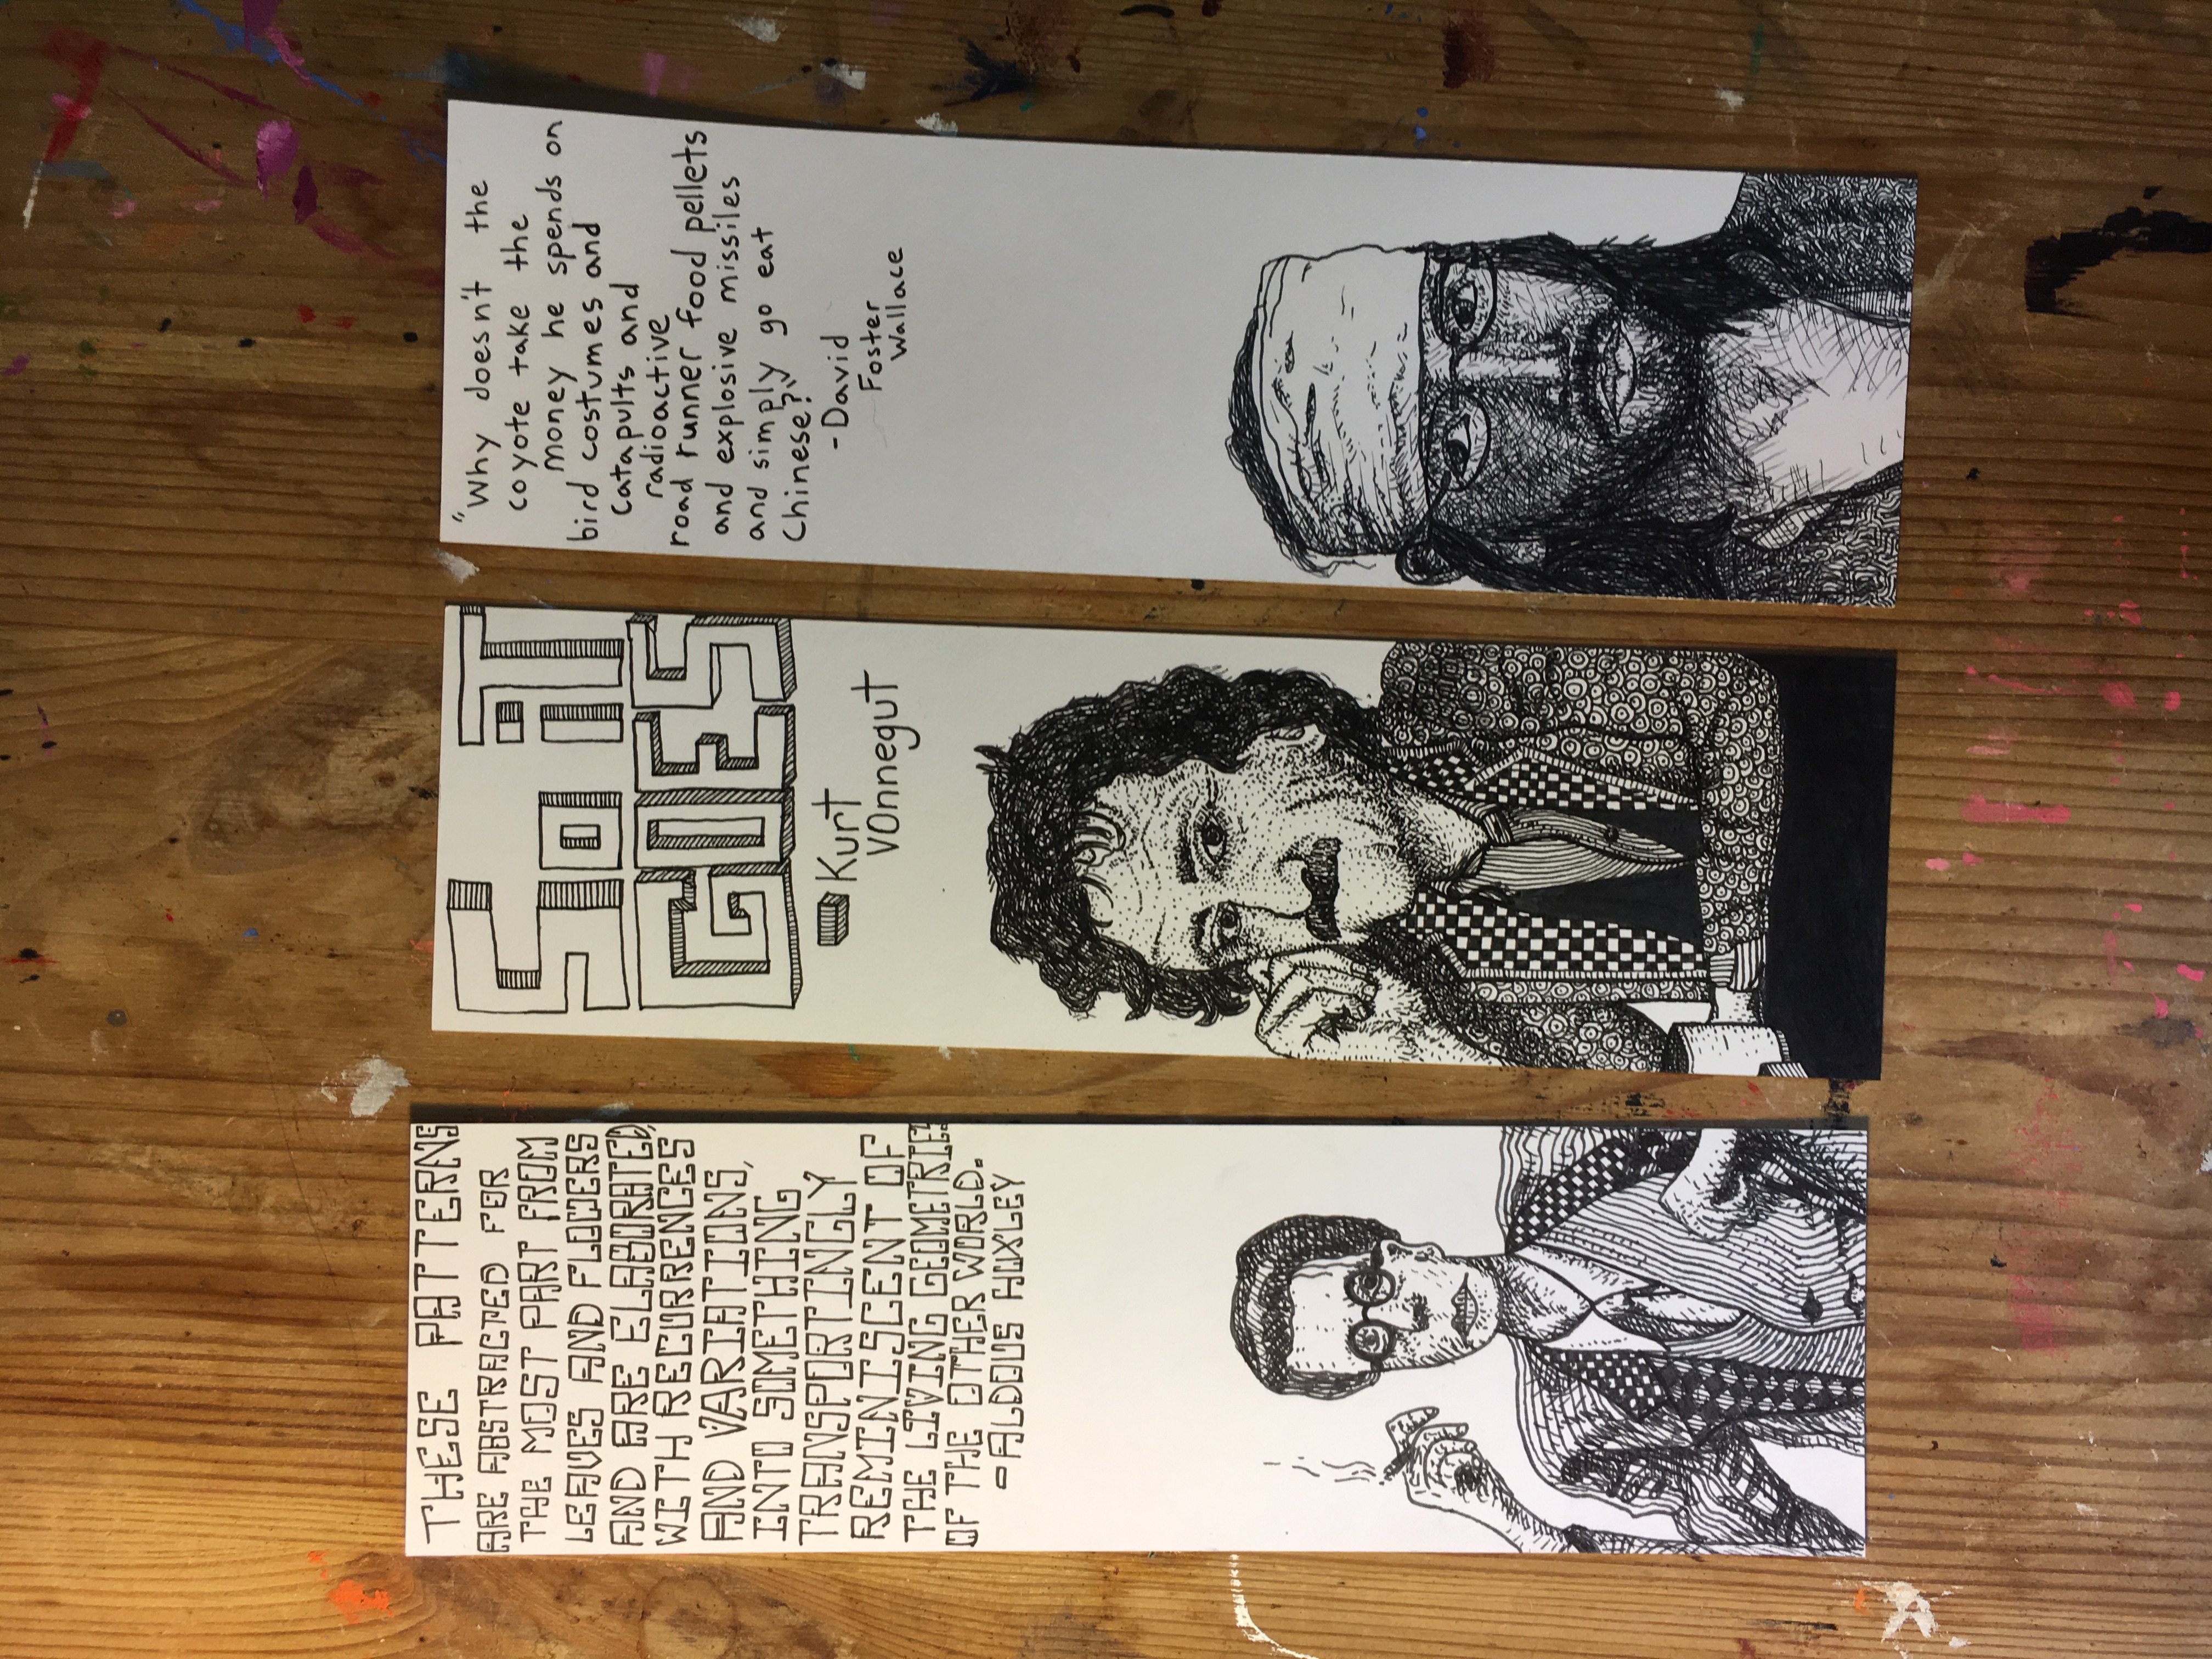 THESE PATTERNS
ARE ABSTRACTED FOR
THE MOST PART FROM
LEAVES AND FLOWERS
AND ARE ELABORATED,
WITH RECURRENCES
AND VARIATIONS,
INTO SOMETHING
TRANSPORTINGLY
REMINISCENT OF
THE LIVING GEOMETRIES
OF THE OTHER WORLD.
-ALDOUS HUXLEY
So iT
GOES
- Kurt
VOnnegut
"Why doesn't the
coyote take the
money he spends on
bird costumes and
catapults and
radioactive
road runner food pellets
and explosive missiles
and simply go eat
Chinese?"
-David
Foster
Wallace